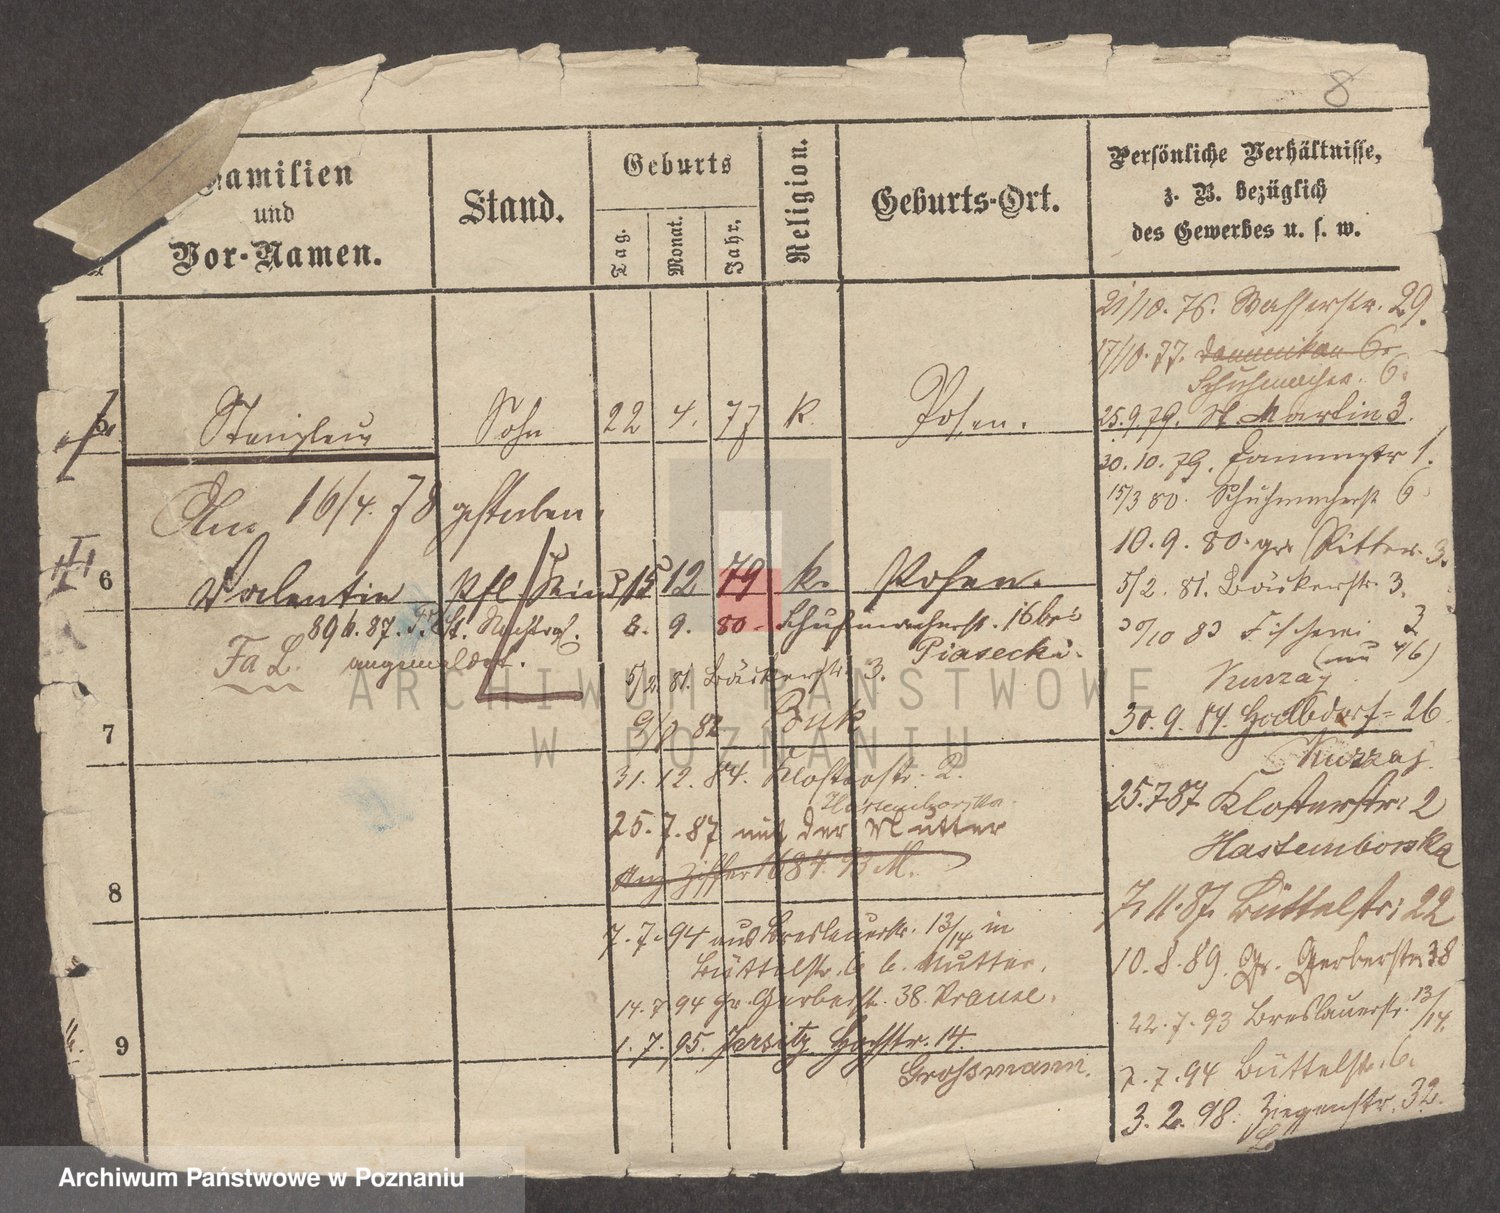 8
Familien
und
Vor-Namen.
Stand.
Geburts
Tag.
Monat.
Jahr.
Religion.
Geburts-Ort.
Persönliche Verhältnisse,
z. B. bezüglich
des Gewerbes u. s. w.
21/10. 76. Wasserstr. 29.
17/10. 77. Dominikan 6.
Schuhmacher. 6.
Stanislaus Sohn 22 4. 77 k. Posen.
25.9.79. St Martin 3.
30. 10. 79. Dammstr 1.
Am 16/4. 78 gestorben.
15/3 80. Schuhmacherst 6
10. 9. 80. gr. Ritter. 3.
6 Valentin Pfl 15 12 79 k. Posen.
5/2. 81. Bäckerstr. 3.
87. St.
8. 9. 80. Schuhmacherst. 16 bei
Piasecki.
10 83 Fischerei 3
Fa L. angemeldet.
(nu 4/6)
Kurzaj
5/2 81. Bäckerstr. 3.
82 Buk
30. 9. 84. Halbdorf= 26
Kurzaj.
7
31. 12. 84. Klosterstr. 2.
Hastemborska.
25. 7. 87 mit der Mutter
25.7 87 Klosterstr: 2
Hastemborska
8
7. 11. 87. Büttelstr: 22
7. 7. 94 aus Breslauerstr. 13/14 in
Büttelstr. 6 b. Mutter.
10. 8. 89. Gr. Gerberstr 38
14. 7 94 Gr. Gerberst. 38. Krause.
22. 7. 93 Breslauerstr. 13/14.
9
1. 7. 95. Jersitz Hochstr. 14.
Grossmann.
7. 7. 94 Büttelstr. 6.
3. 2. 98. Ziegenstr. 32.
ARCHIWUM PAŃSTWOWE
W POZNANIU
Archiwum Państwowe w Poznaniu